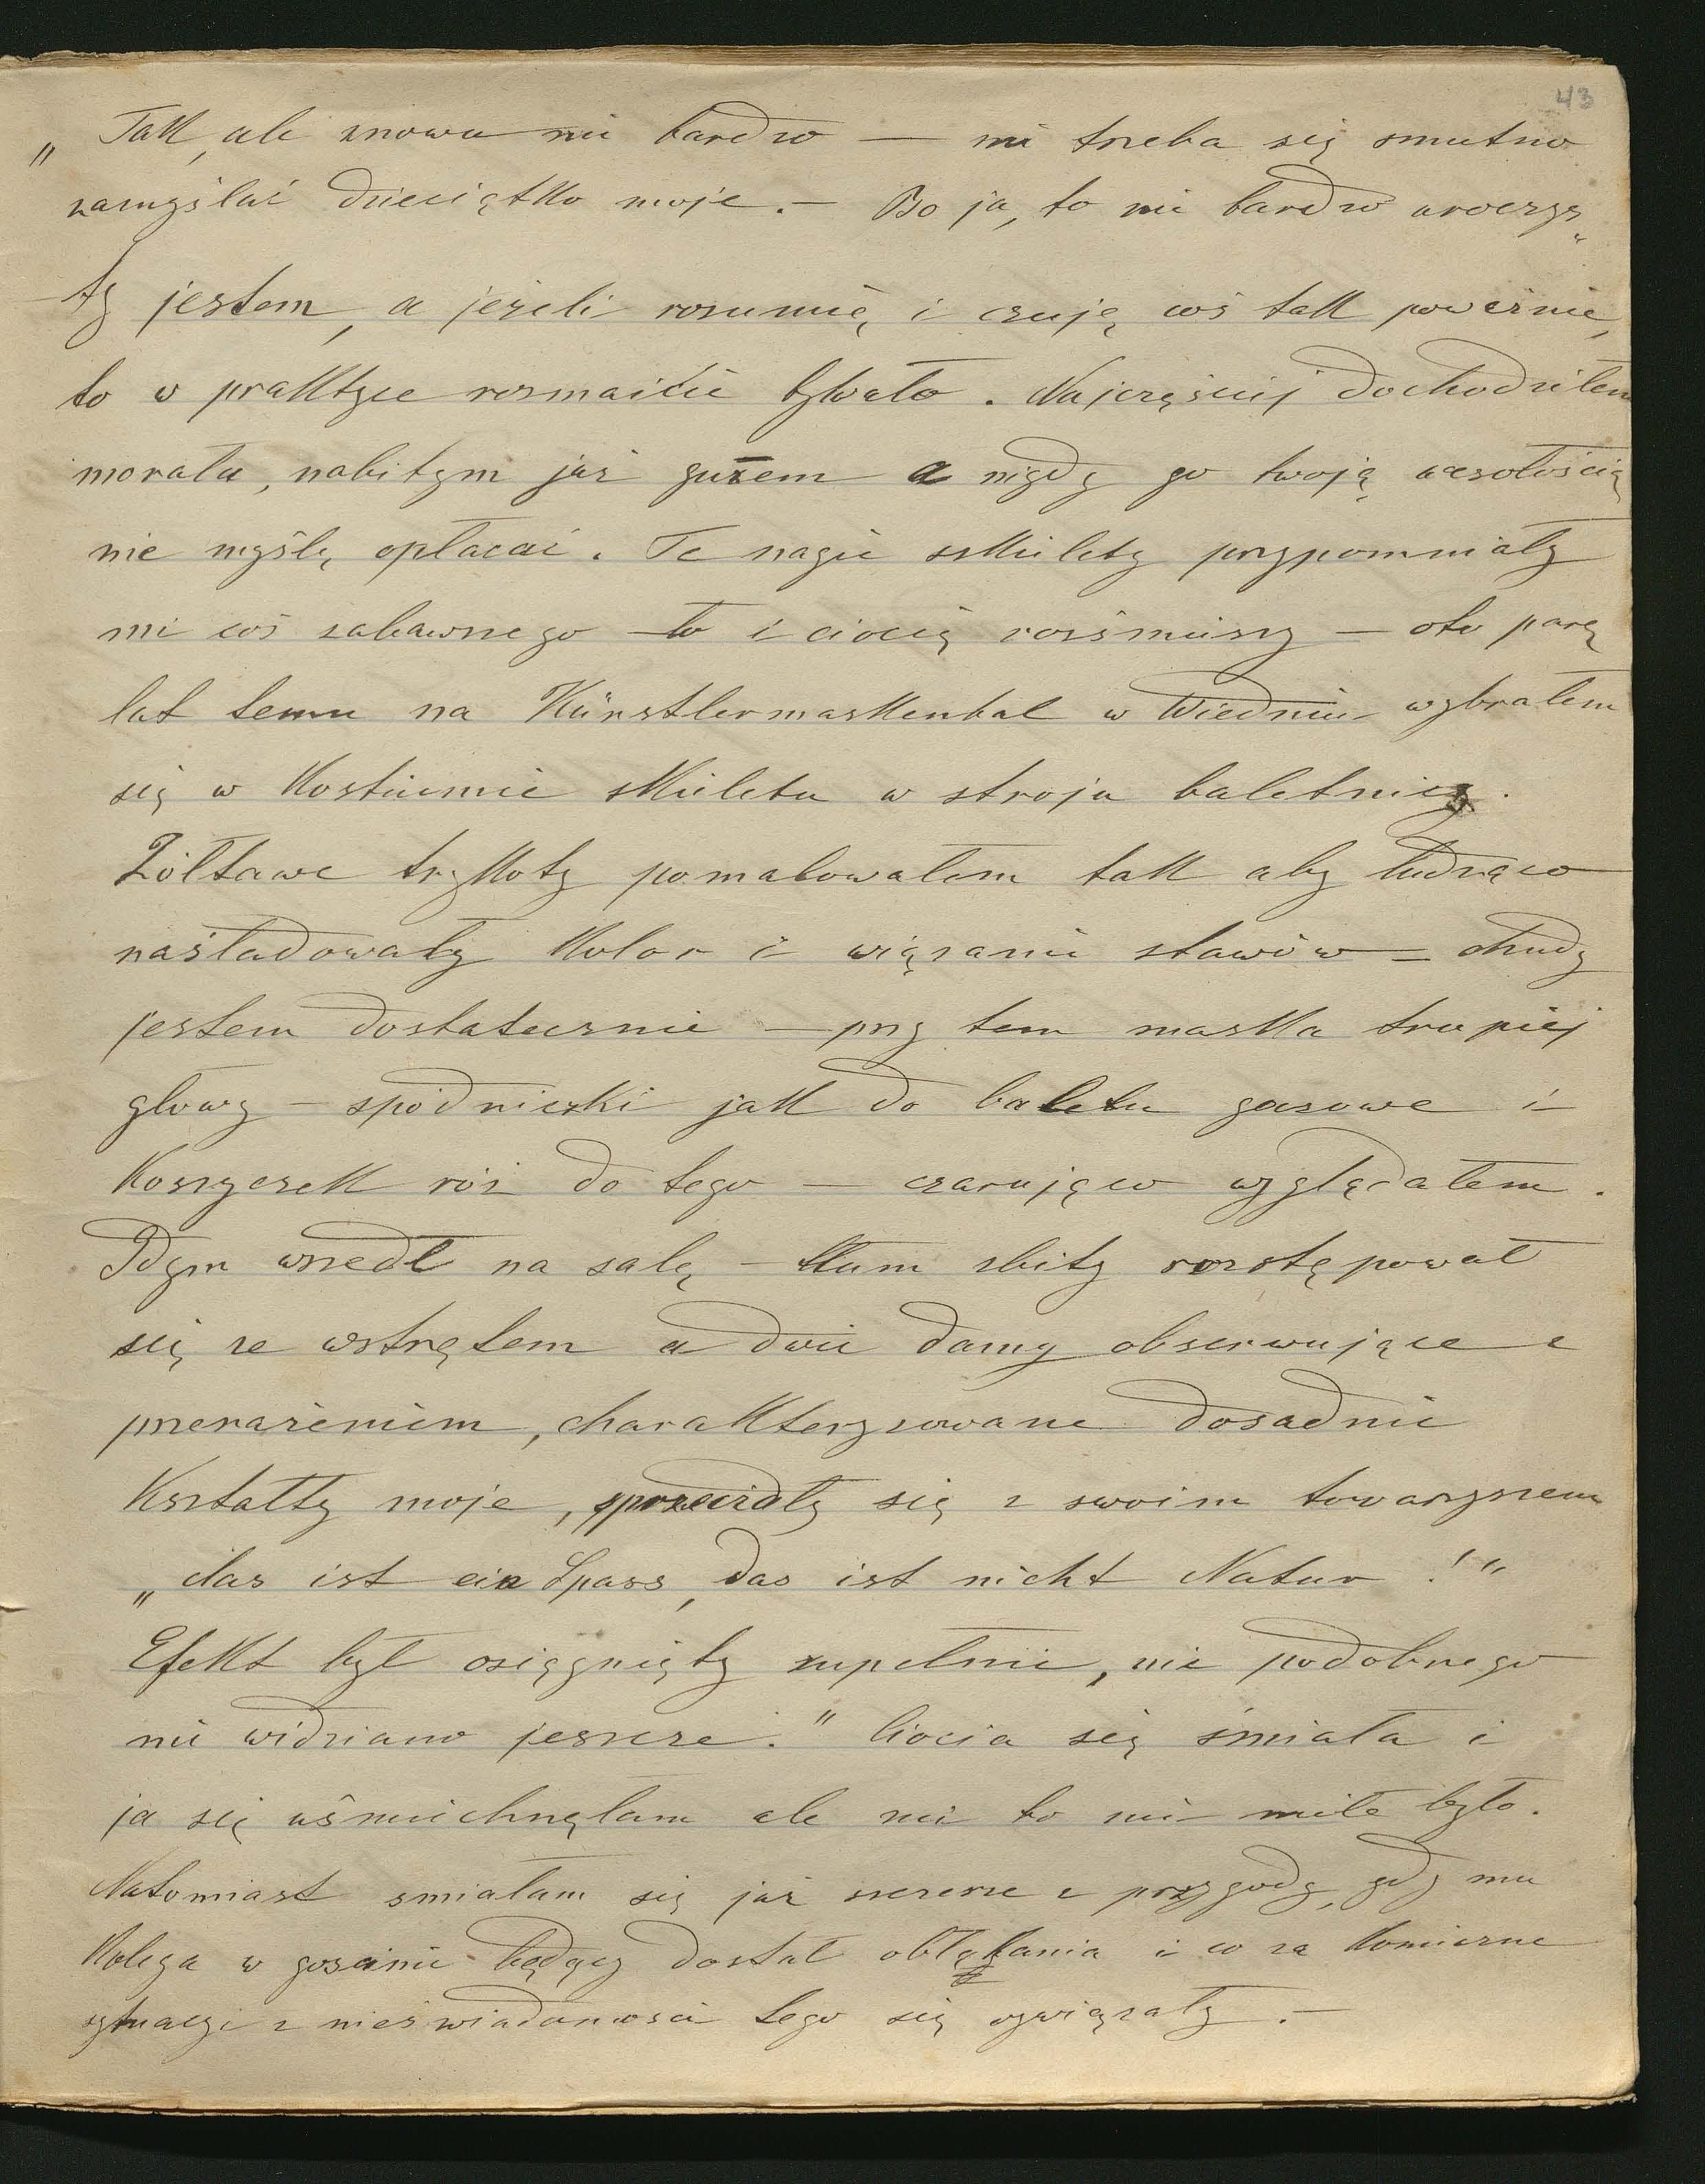 43
„Tak, ale znowu nie bardzo — nie trzeba się smutno
zamyślać dzieciątko moje. — Bo ja, to nie bardzo uroczys„
ty jestem, a jeżeli rozumię i czuję coś tak poważnie,
to w praktyce rozmaicie bywało. Najczęściej dochodziłem
morału, nabitym już guzem a nigdy go twoją wesołością
nie myślę opłacać. Te nagie szkielety przypomniały
mi coś zabawnego – to i ciocię rozśmieszy – oto parę
lat temu na Künstlermaskenbal w Wiedniu wybrałem
się w kostiumie szkieletu w stroju baletnicy.
Żółtawe trykoty pomalowałem tak aby łudząco
naśladowały kolor i wiązanie stawów – chudy
jestem dostatecznie – przy tem maska trupiej
głowy – spódniczki jak do baletu gazowe i
koszyczek róż do tego – czarująco wyglądałem.
Gdym wszedł na salę – tłum zbity rozstępował
się ze wstrętem a dwie damy obserwujące z
przerażeniem, charakteryzowane dosadnie
kształty moje, sprzeczały się z swoim towarzyszem
„das ist ein Spass, das ist nicht Natur!"
Efekt był osiągnięty zupełnie, nic podobnego
nie widziano jeszcze." Ciocia się śmiała i
ja się uśmiechnęłam ale nie to nie miłe było.
Natomiast smiałam się już szczerze z przygody, gdy mu
kolega w gościnie będący dostał obłąkania i co za komiczne
sytuacje z nieświadomości tego się wywiązały. –